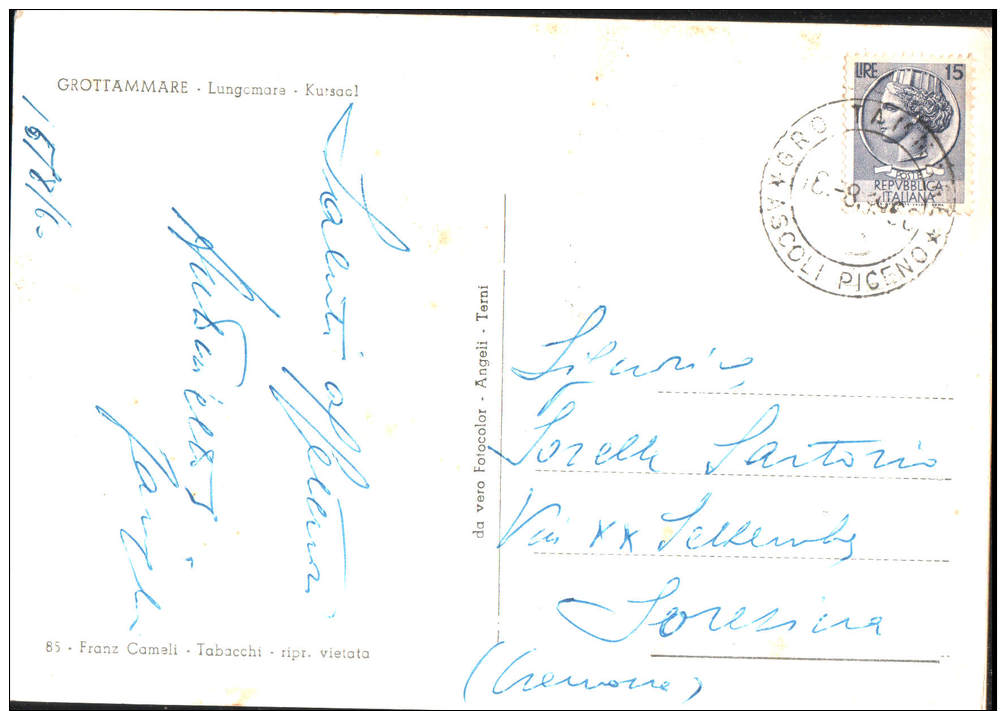 GROTTAMMARE - Lungomare - Kursaal
16/8/60
Saluti affettuosi
LIRE 15
POSTE
REPVBBLICA
ITALIANA
GROTTAMMARE
ASCOLI PICENO
da vero Fotocolor - Angeli - Terni
Sorelle Sartorio
Via XX Settembre
Soresina
(Cremona)
85 - Franz Cameli - Tabacchi - ripr. vietata